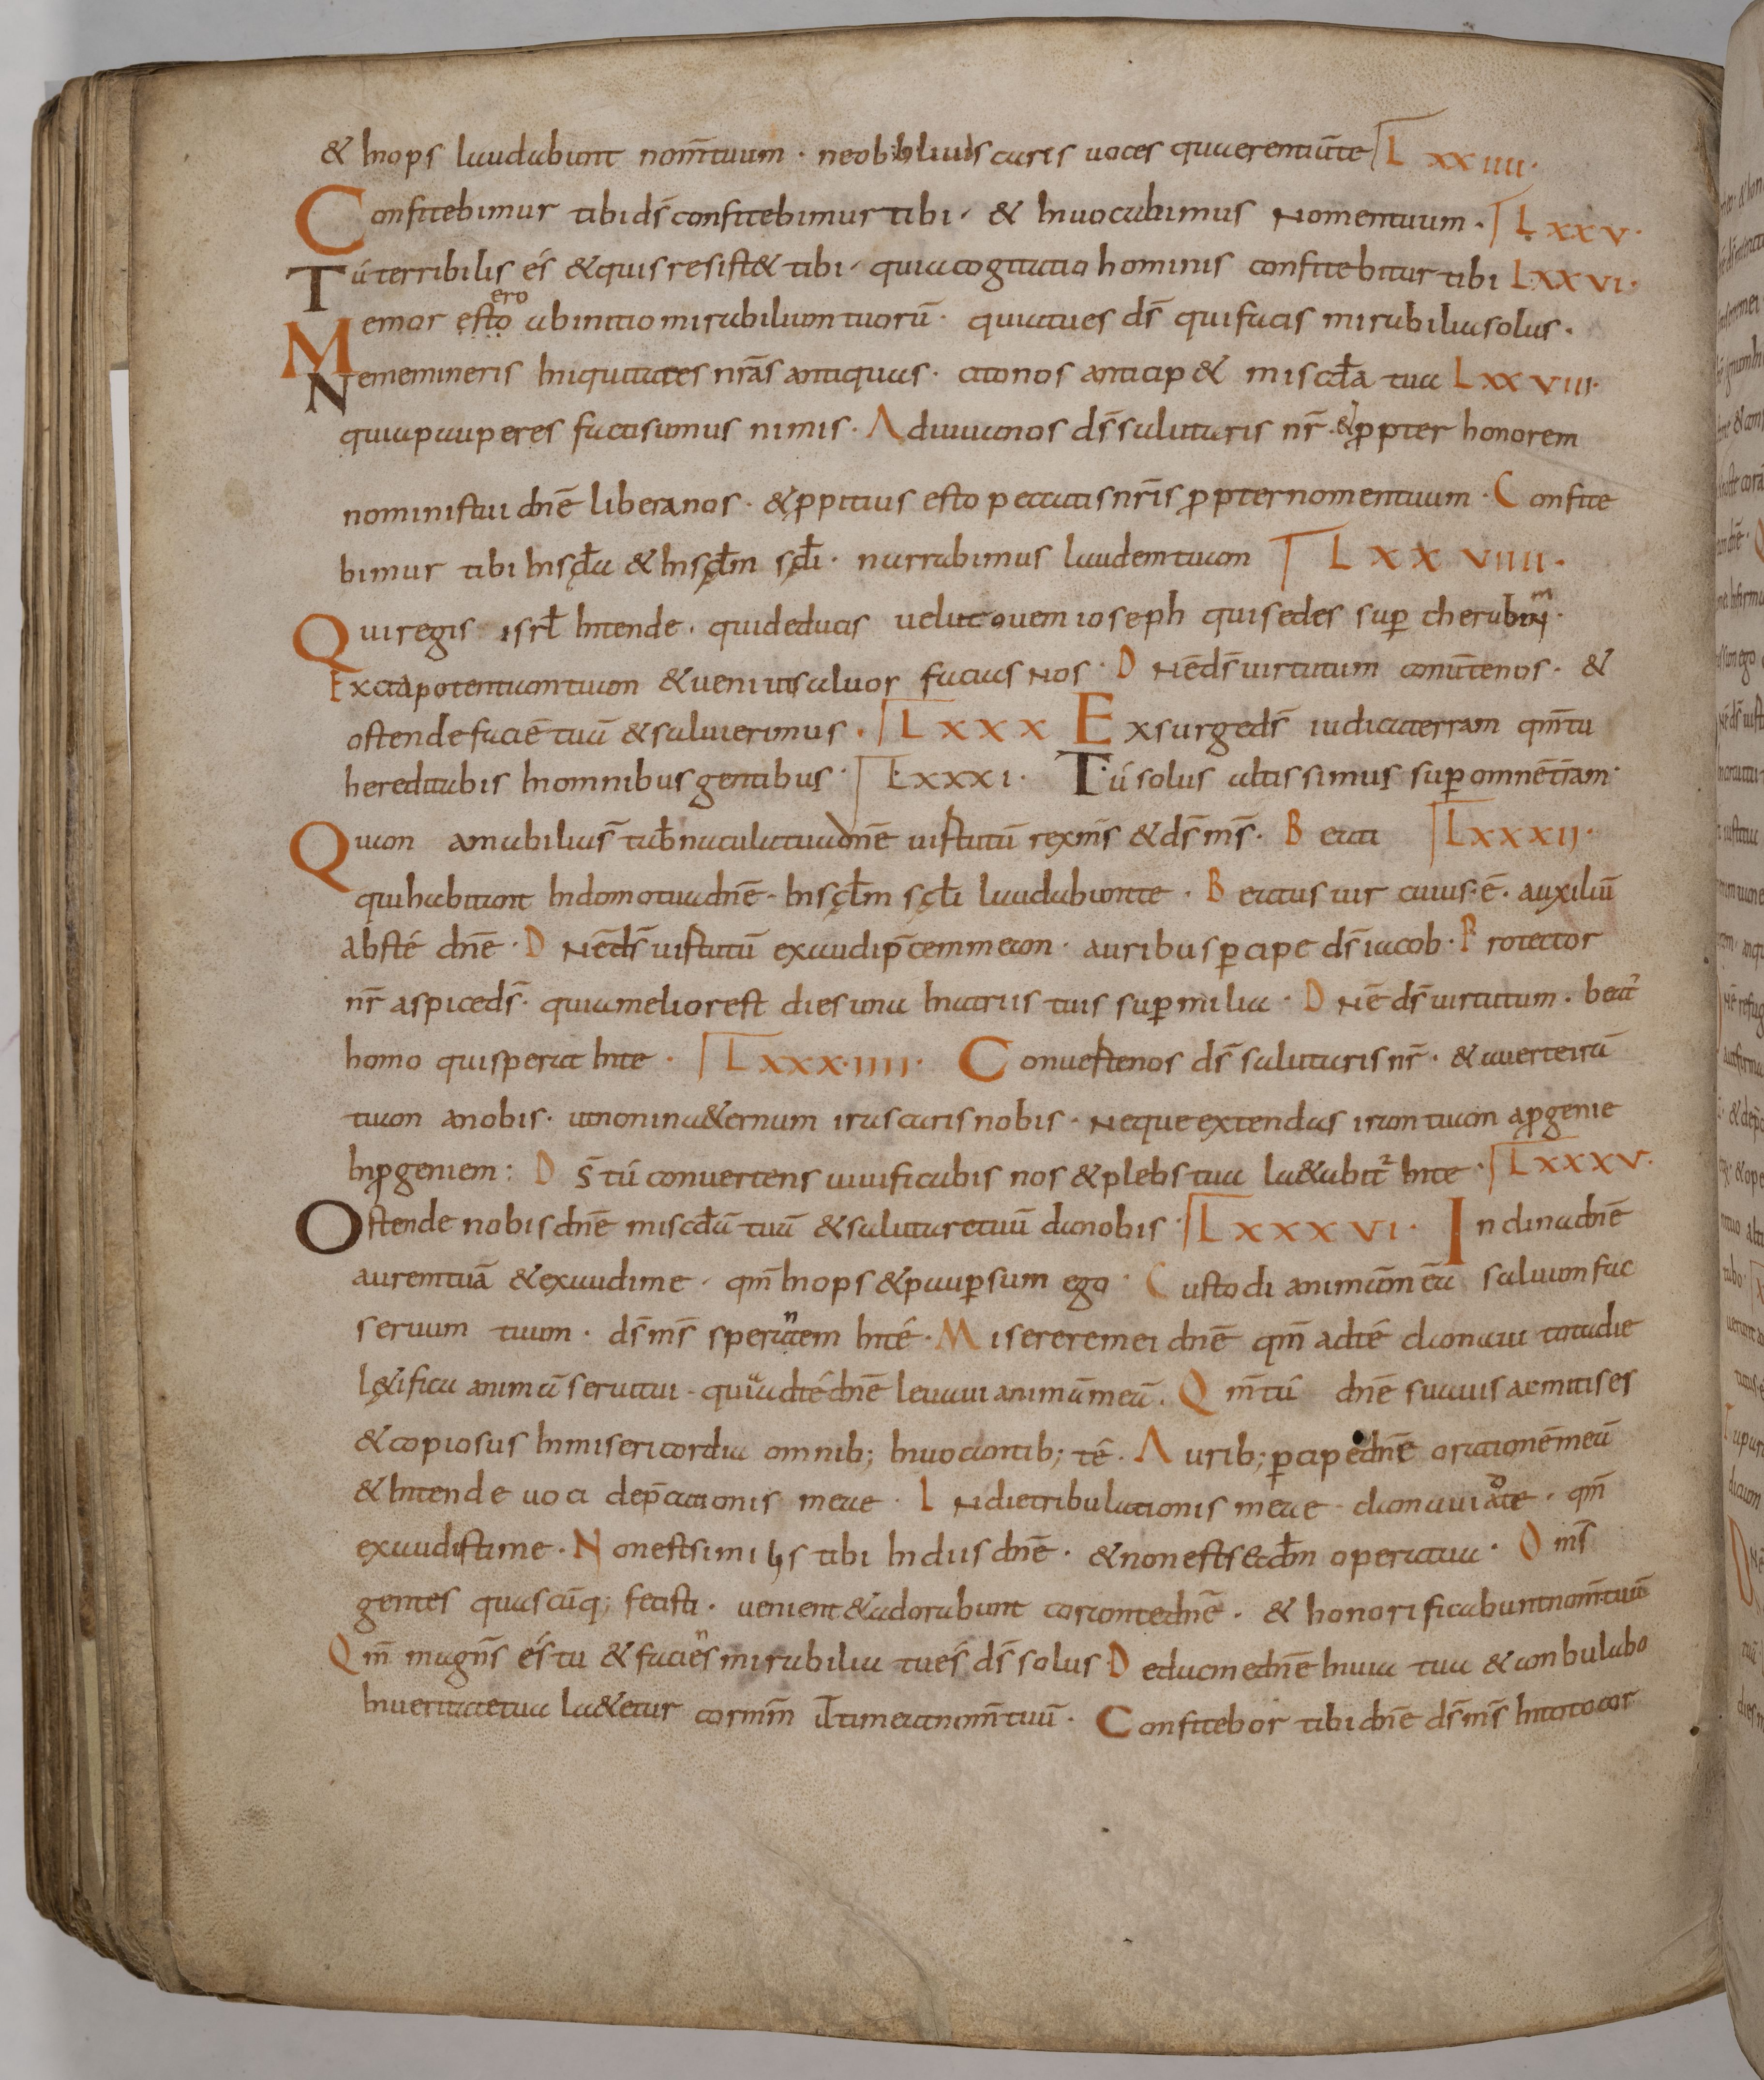 & inops laudabunt nom̅ tuum · ne obbliuiscaris uoces quaerentiu̅ te LXXIIII·
Confitebimur tibi ds̅ confitebimur tibi · & inuocabimus Nomen tuum · LXXV·
Tú terribilis és & quis resist& tibi · quia cogitatio hominis confitebitur tibi LXXVI·
Memor esto ero ab initio mirabilium tuoru̅ · quia tu es ds̅ qui facis mirabilia solus ·
Ne memineris iniquitates nr̅as antiquas · cito nos anticip& miscd̅a tua LXXVIII·
quia pauperes facti sumus nimis · Adiuua nos ds̅ salutaris nr̅ · & ꝓpter honorem
nominis tui dn̅e libera nos · & ꝓpitius esto peccatis nr̅is ꝓpter nomen tuum · Confite
bimur tibi in sçl̅a & in sçl̅m sçl̅i · narrabimus laudem tuam LXXVIIII·
Qui regis isrl̅ intende · qui deducis uelut ouem ioseph qui sedes suꝑ cherubim ·
Excita potentiam tuam & ueni ut saluos facias Nos · DNe̅ ds̅ uirtutum conu̅te nos · &
ostende facie̅ tua̅ & salui erimus · LXXX Exsurge ds̅ iudica terram qm̅ tu
hereditabis in omnibus gentibus · LXXXI· Tú solus altissimus suꝑ omne̅ tr̅am·
Quam amabilia s̅ tab̅nacula tua dn̅e uirtutu̅ rex ms̅ & ds̅ ms̅ · Beati LXXXII·
qui habitant in domo tua dn̅e · in sçl̅m sçl̅i laudabunt te · Beatus uir cuius · e̅ · auxiliu̅
abs té dn̅e · DNe̅ ds̅ uirtutu̅ exaudi p̅cem meam · auribus ꝑcipe ds̅ iacob · Protector
nr̅ aspice ds̅ · quia melior est dies una in atriis tuis suꝑ milia · DNe̅ ds̅ uirtutum · beat᷒
homo qui sperat in te · LXXX·IIII· Conuerte nos ds̅ salutaris nr̅ · & auerte ira̅
tuam a nobis · ut non in a&ernum irascaris nobis · Neque extendas iram tuam a ꝓgenie
in ꝓgeniem : Ds̅ tú conuertens uiuificabis nos & plebs tua la&abit᷒ in te · LXXXV·
Ostende nobis dn̅e miscd̅a̅ tua̅ & salutare tuu̅ da nobis · LXXXVI· Inclina dn̅e
aurem tua̅ & exaudi me · qm̅ inops & pauꝑ sum ego · Custodi animam̅ ea̅ saluum fac
seruum tuum · ds̅ ms̅ sperantem in té · Miserere mei dn̅e qm̅ ad té clamaui tota die
l&ifica anima̅ serui tui · quia ad té dn̅e leuaui anima̅ mea̅ · Qm̅ tú dn̅e suauis ac mitis es
& copiosus in misericordia omnib; inuocantib; té · Aurib; ꝑcipe dn̅e oratione̅ mea̅
& intende uoci dep̅cationis meae · IN die tribulationis meae · clamaui ad te · qm̅
exaudisti me · Non est similis tibi in diis dn̅e · & non est secd̅m opera tua · Om̅s
gentes quascu̅q; fecisti · uenient & adorabunt coram te dn̅e · & honorificabunt nom̅ tuu̅
Qm̅ magn̅s és tu & faciens mirabilia tu és ds̅ solus Deduc me dn̅e in uia tua & ambulabo
in ueritate tua la&etur cor mm̅ ut timeat nom̅ tuu̅ · Confitebor tibi dn̅e ds̅ ms̅ in toto cor